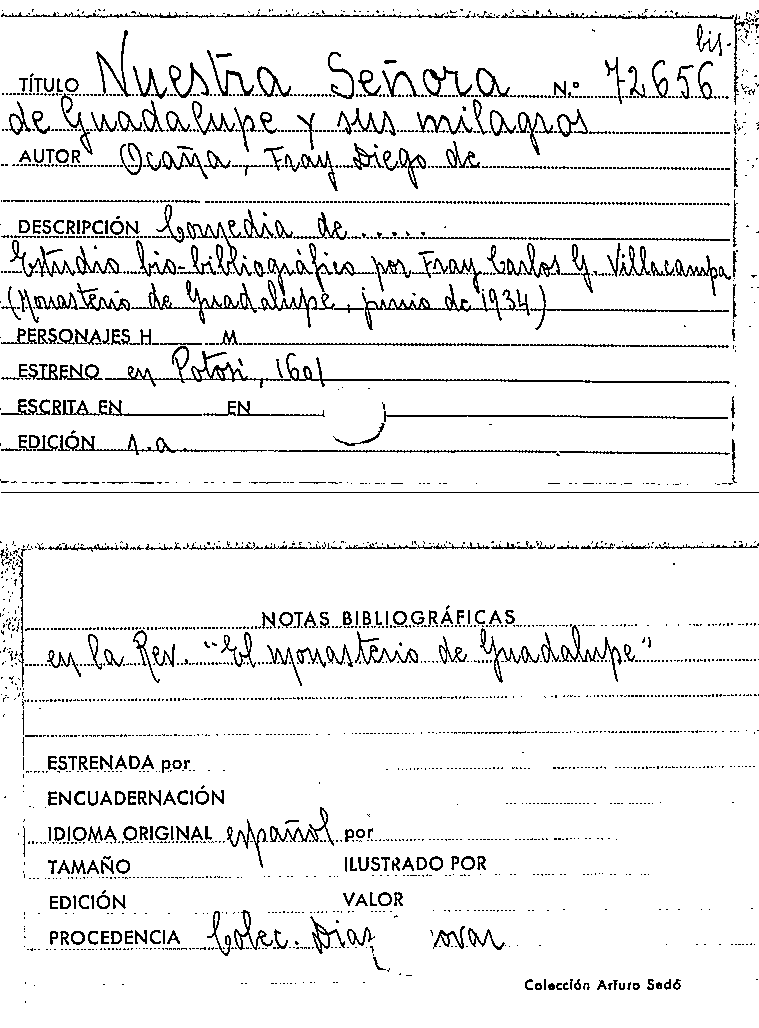 bis-
TÍTULO Nuestra Señora N.º 72656
de Guadalupe y sus milagros
AUTOR Ocaña, Fray Diego de
DESCRIPCIÓN Comedia de .....
Estudio bio-bibliográfico por Fray Carlos G. Villacampa
(Monasterio de Guadalupe, junio de 1934)
PERSONAJES H M
ESTRENO en Potosi, 1601
ESCRITA EN EN
EDICIÓN 1.a
NOTAS BIBLIOGRÁFICAS
en la Rev. "El monasterio de Guadalupe"
ESTRENADA por
ENCUADERNACIÓN
IDIOMA ORIGINAL español por
TAMAÑO ILUSTRADO POR
EDICIÓN VALOR
PROCEDENCIA Colec. Diaz
Colección Arturo Sedó